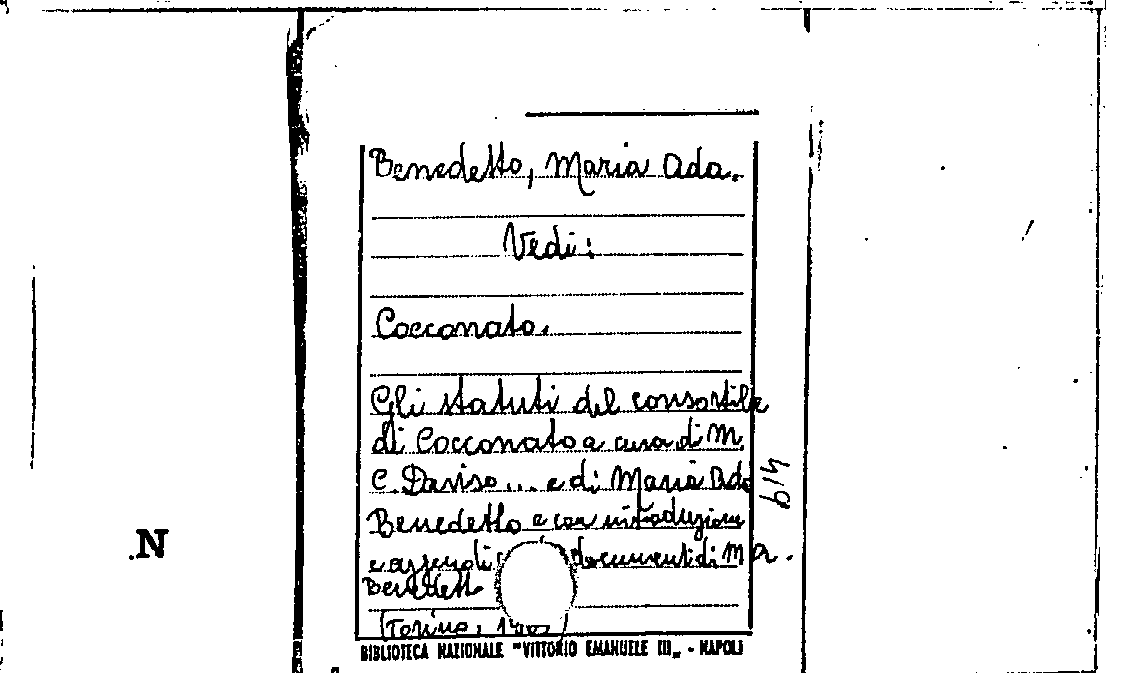 Benedetto, Maria Ada.
Vedi:
Cocconato.
Gli statuti del consortile
di Cocconato a cura di M.
C. Daviso... e di Maria Ada
Benedetto e con introduzione
e appendi documenti di M A.
Benedett
Torino,
BIBLIOTECA NAZIONALE "VITTORIO EMANUELE III„ - NAPOLI
.N